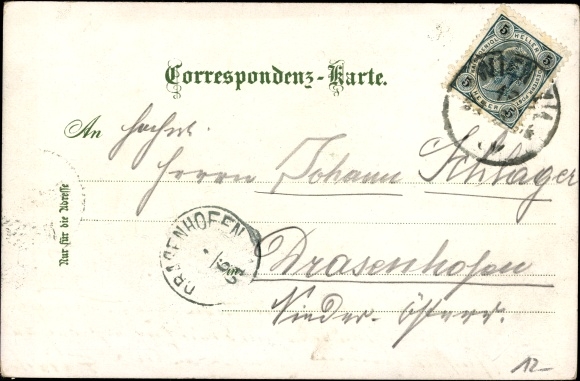 Correspondenz-Karte.
5 5
HELLER HELLER
5 5
WIEN
An
Herrn Johann Schlager
Nur für die Adresse
DRASENHOFEN
Drasenhofen
Nieder-Österr.
12-